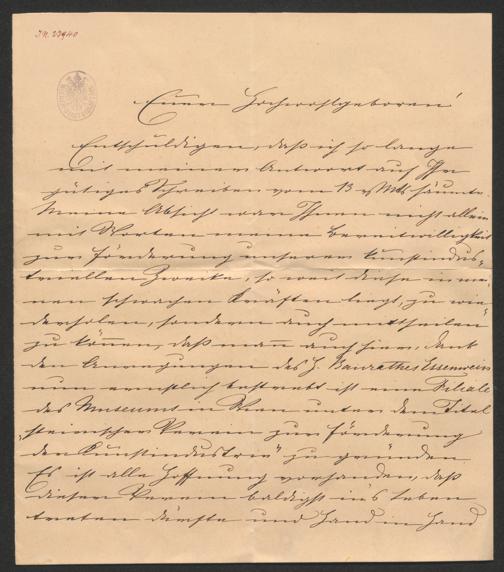 I.N. 23940
Euer Hochwohlgeboren!
Entschuldigen, daß ich so lange
mit meiner Antwort auf Ihr
gütiges Schreiben vom 13 v. Mts. säumte.
Meine Absicht war Ihnen nicht allein
mit Worten meine Bereitwilligkeit
zur Förderung unserer kunstindus-
triellen Zwecke, so weit diese in mei-
nen schwachen Kräften liegt, zu wie-
derholen, sondern auch mittheilen
zu können, daß man auch hier, dank
den Anregungen des H. Baurathes Essenwein
nun ernstlich bestrebt ist eine Filiale
des Museums in Wien unter dem Titel
„steirischer Verein zur Förderung
der Kunstindustrie" zu gründen.
Es ist alle Hoffnung vorhanden, daß
dieser Verein baldigst ins Leben
treten dürfte und Hand in Hand